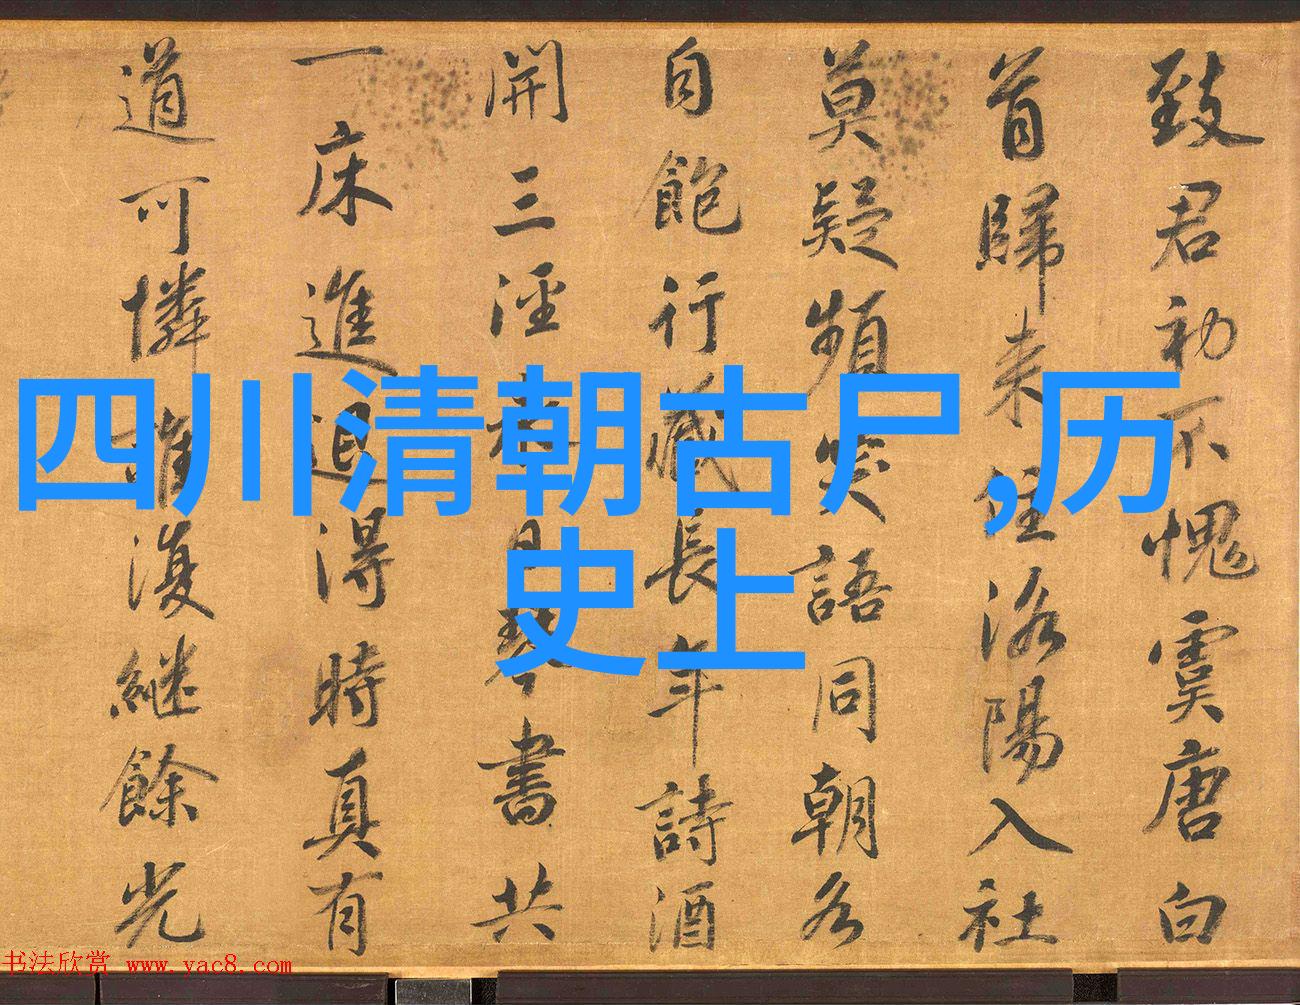 四川清朝古尸,历
史上
致君初不愧虞唐白
首歸来住洛陽入社
莫疑頻笑語同朝各
自飽行藏長年詩酒
開三徑日琴書共
一床進退得時真有
道可憐誰復繼餘光
书法欣赏 www.yac8.com